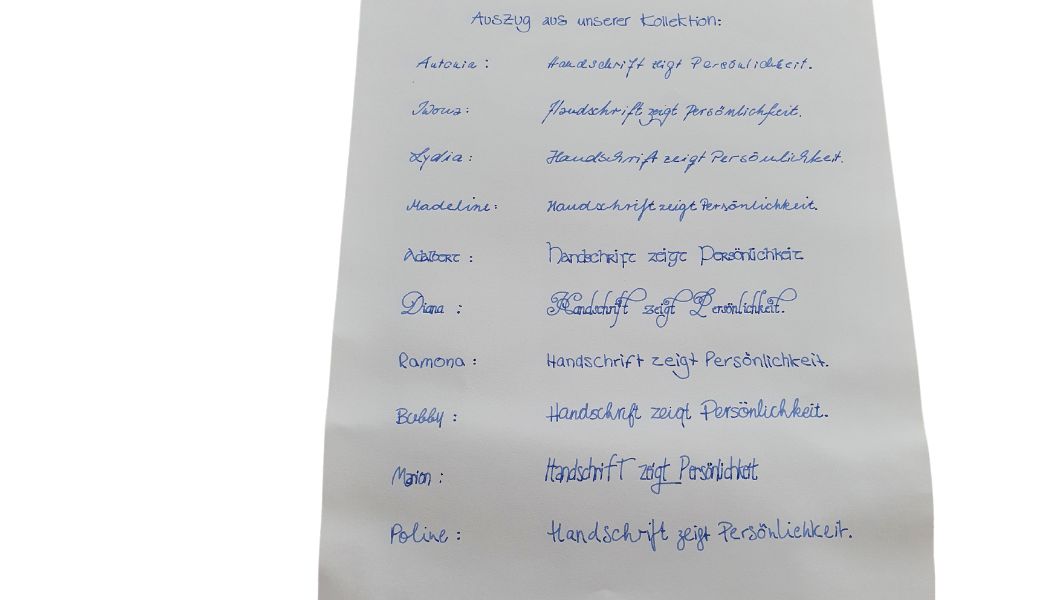 Auszug aus unserer Kollektion:
Antonia : Handschrift zeigt Persönlichkeit.
Iwona: Handschrift zeigt Persönlichkeit.
Lydia : Handschrift zeigt Persönlichkeit.
Madeline: Handschrift zeigt Persönlichkeit.
Adalbert : Handschrift zeigt Persönlichkeit
Diana : Handschrift zeigt Persönlichkeit.
Ramona : Handschrift zeigt Persönlichkeit.
Bobby : Handschrift zeigt Persönlichkeit.
Marion : Handschrift zeigt Persönlichkeit
Poline : Handschrift zeigt Persönlichkeit.